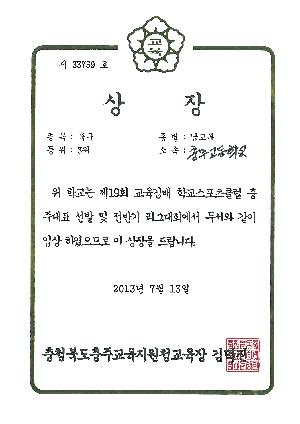 교육
제 33799 호
상 장
종 목 : 축구
종 별 : 남고부
등 위 : 3위
소 속 : 충주고등학교
위 학교는 제19회 교육감배 학교스포츠클럽 충
주대표 선발 및 전반기 리그대회에서 두서와 같이
입상 하였으므로 이 상장을 드립니다.
2013년 7월 13일
충청북도충주교육지원청교육장 김